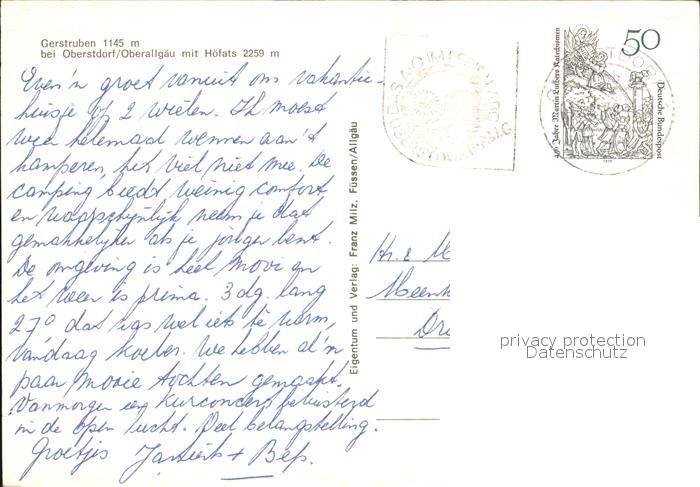 Gerstruben 1145 m
bei Oberstdorf/Oberallgäu mit Höfats 2259 m
Even'n groet vanuit ons vakantie-
huisje op 2 wielen. Ik moest
weer helemaal wennen aan't
kamperen, het viel niet mee. De
camping biedt weinig comfort
en waarschijnlijk neem je dat
gemakkelijker als je jonger bent.
De omgeving is heel mooi en
het weer is prima. 3 dg. lang
27° dat was wel iets te warm,
vandaag koeler. We hebben al'n
paar mooie tochten gemaakt.
Vanmorgen een Kurconcert beluisterd
in de open lucht. Veel belangstelling.
Groetjes + Bep.
Eigentum und Verlag: Franz Milz, Füssen/Allgäu
50
450 Jahre Martin Luthers Katechismus
Deutsche Bundespost
1979
Hr. &
privacy protection
Datenschutz